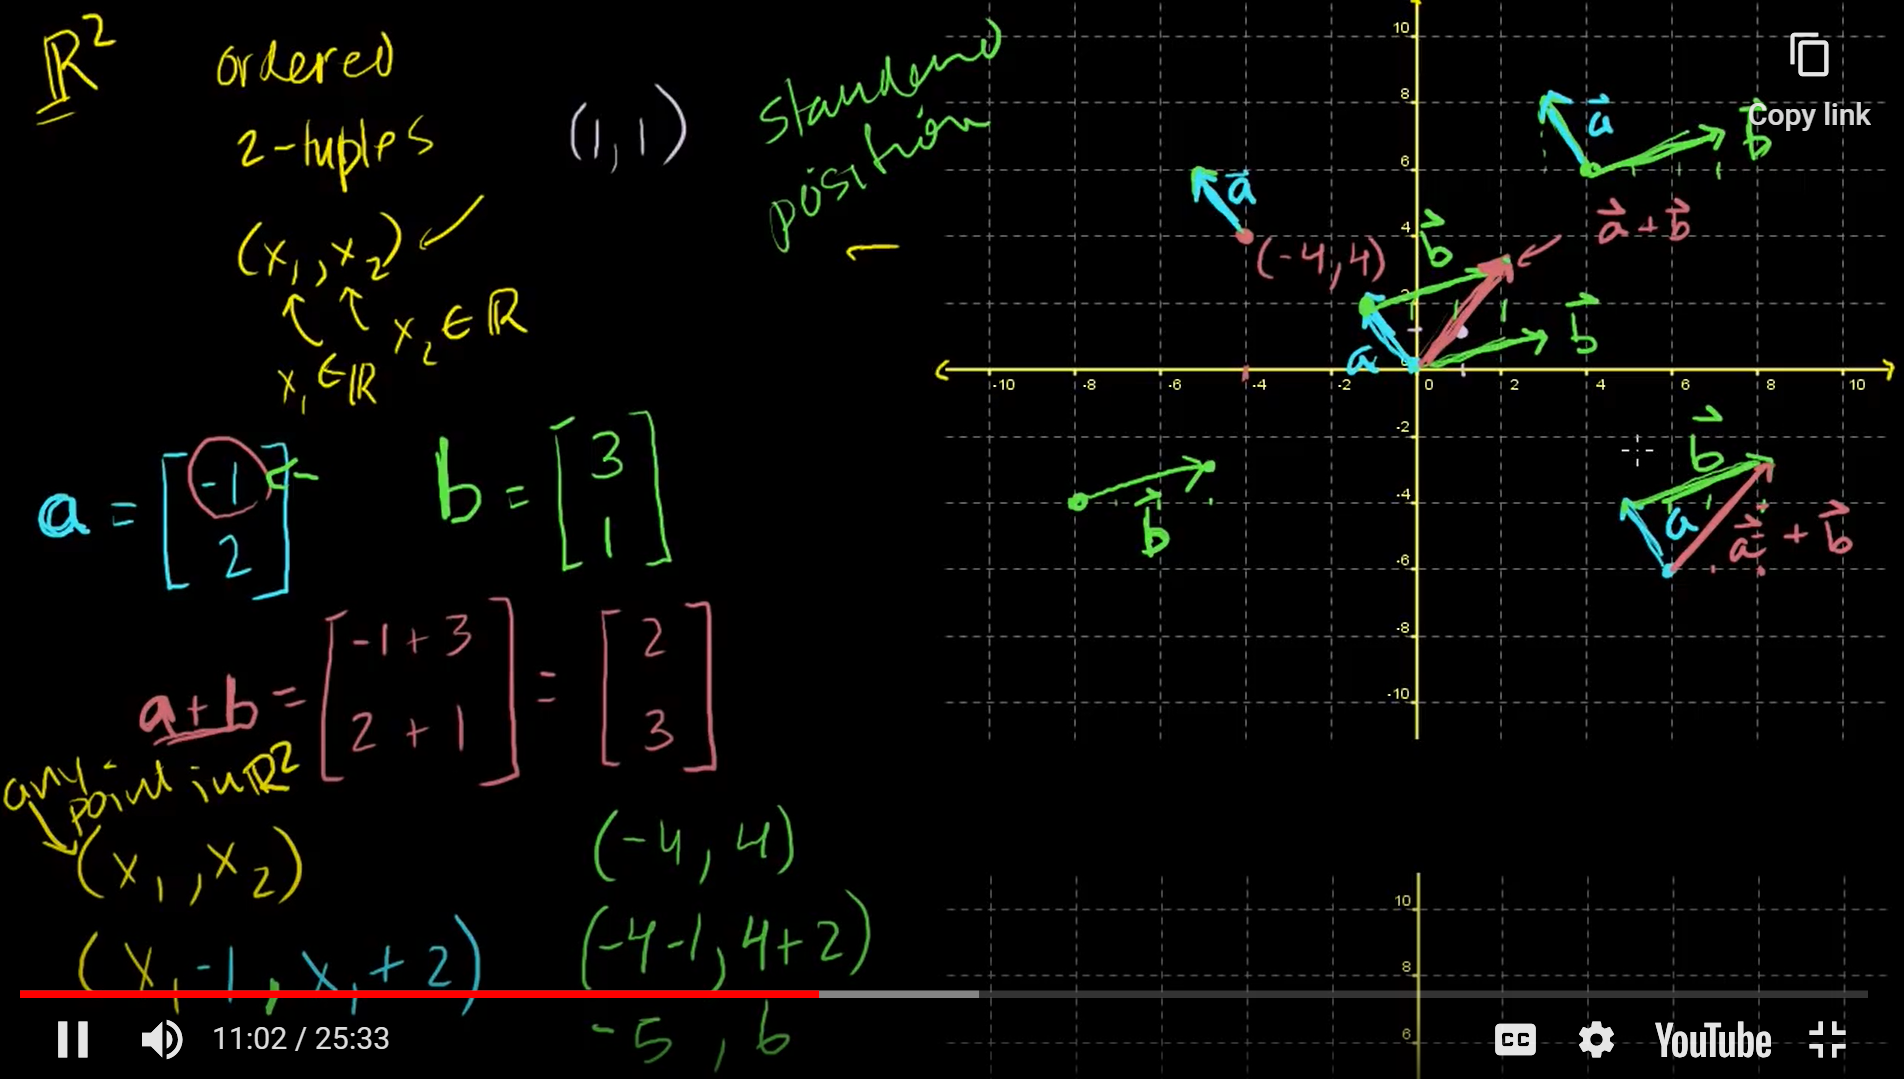 ℝ² ordered
2-tuples
(x₁, x₂)
x₁ ∈ ℝ x₂ ∈ ℝ
(1,1)
standard
position
a = [-1 2]
b = [3 1]
a+b = [-1+3 2+1] = [2 3]
any point in ℝ²
(x₁, x₂)
(x₁-1, x₁+2)
(-4, 4)
(-4-1, 4+2)
-5, 6
10
8
6
4
2
-2
-4
-6
-8
-10
-10 -8 -6 -4 -2 0 2 4 6 8 10
a⃗
(-4,4)
b⃗
a⃗
b⃗
a⃗ + b⃗
a
b⃗
b⃗
b⃗
a
a⃗ + b⃗
10
8
6
Copy link
11:02 / 25:33
CC
YouTube